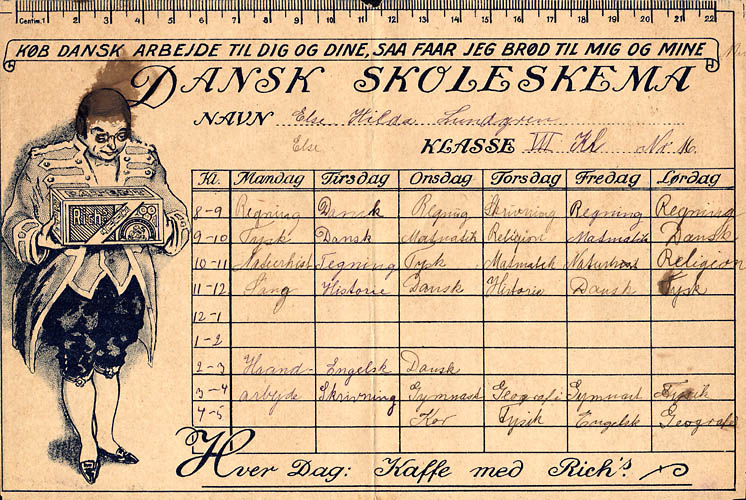 Centim. 1 2 3 4 5 6 7 8 9 10 11 12 13 14 15 16 17 18 19 20 21 22
KØB DANSK ARBEJDE TIL DIG OG DINE, SAA FAAR JEG BRØD TIL MIG OG MINE
DANSK SKOLESKEMA
NAVN Else Hilda Lundgren
Else
KLASSE VII Kl No 16
Rich's
Kl. Mandag Tirsdag Onsdag Torsdag Fredag Lørdag
8-9 Regning Dansk Regning Skrivning Regning Regning
9-10 Tysk Dansk Matmatik Religion Matmatik Dansk
10-11 Naturhist Tegning Tysk Matmatik Naturhist Religion
11-12 Sang Historie Dansk Historie Dansk Tysk
12-1
1-2
2-3 Haand- Engelsk Dansk
3-4 arbejde Skrivning Gymnast Geografi Gymnast Fysik
4-5 Kor Fysik Engelsk Geografi
Hver Dag: Kaffe med Rich's.